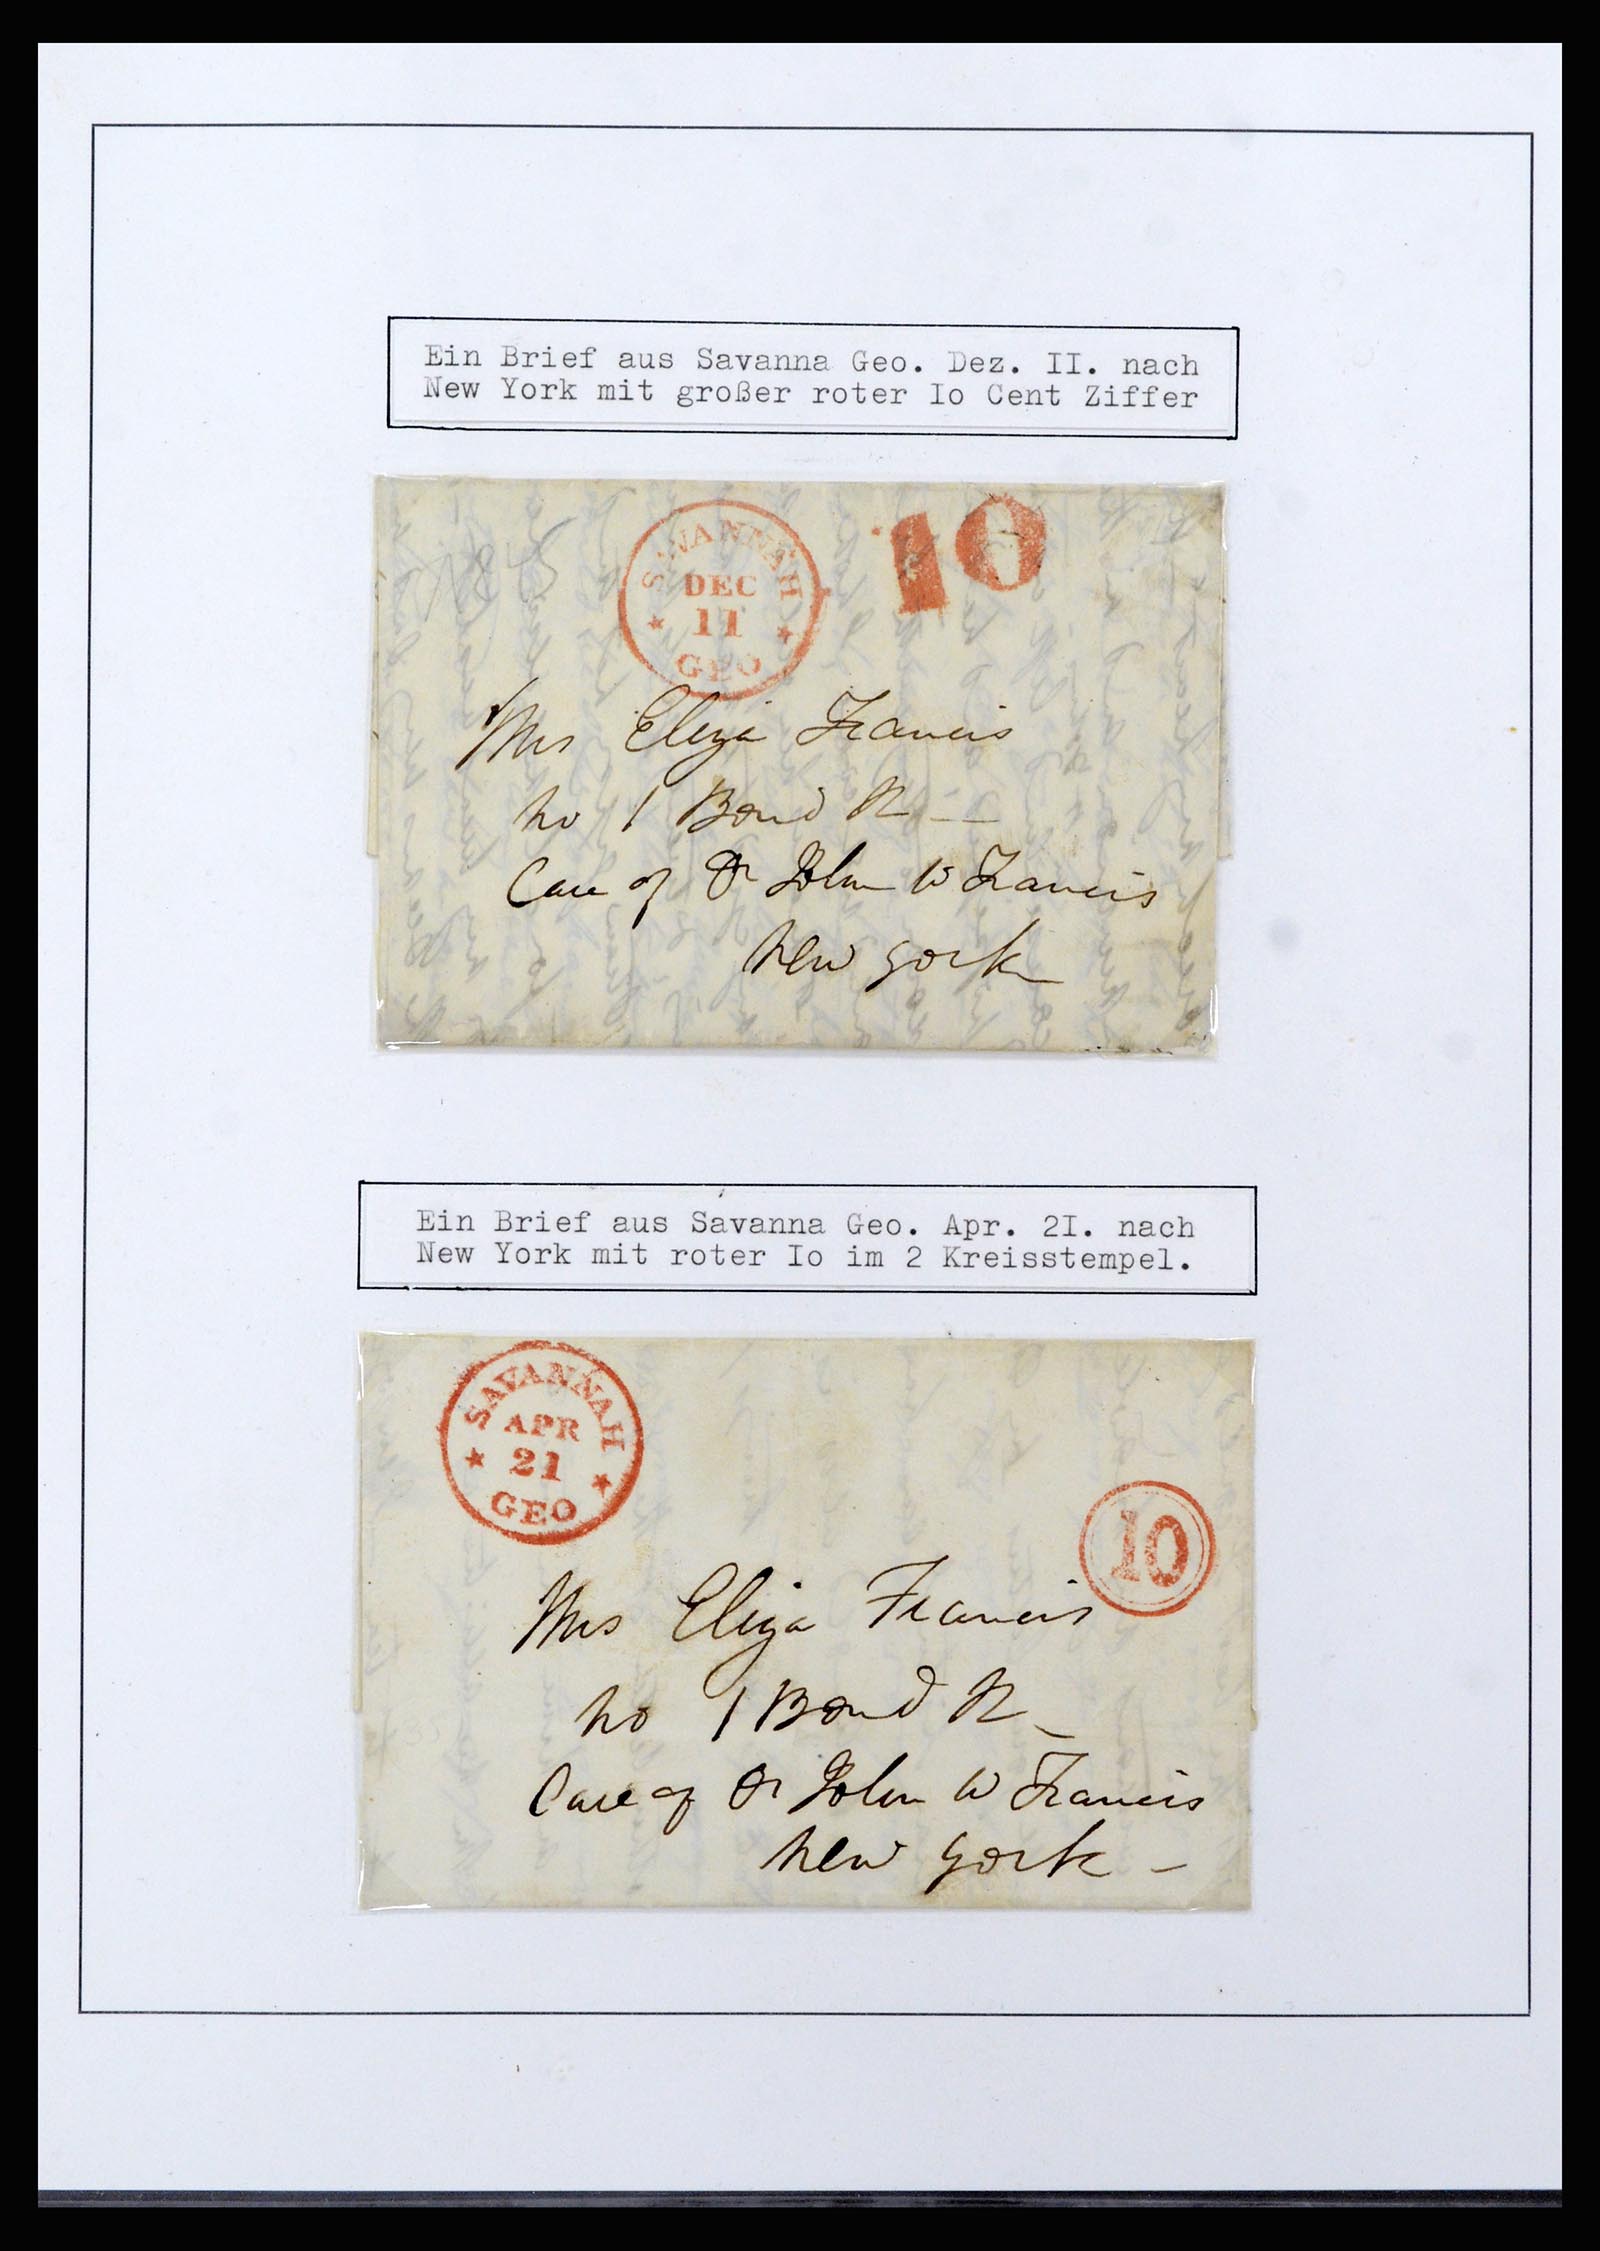 Ein Brief aus Savanna Geo. Dez. II. nach
New York mit großer roter Io Cent Ziffer
SAVANNAH
DEC
11
GEO
10
Mrs Eliza Francis
No 1 Bond St
Care of Dr John W Francis
New York
Ein Brief aus Savanna Geo. Apr. 2I. nach
New York mit roter Io im 2 Kreisstempel.
SAVANNAH
APR
21
GEO
10
Mrs Eliza Francis
No 1 Bond St
Care of Dr John W Francis
New York